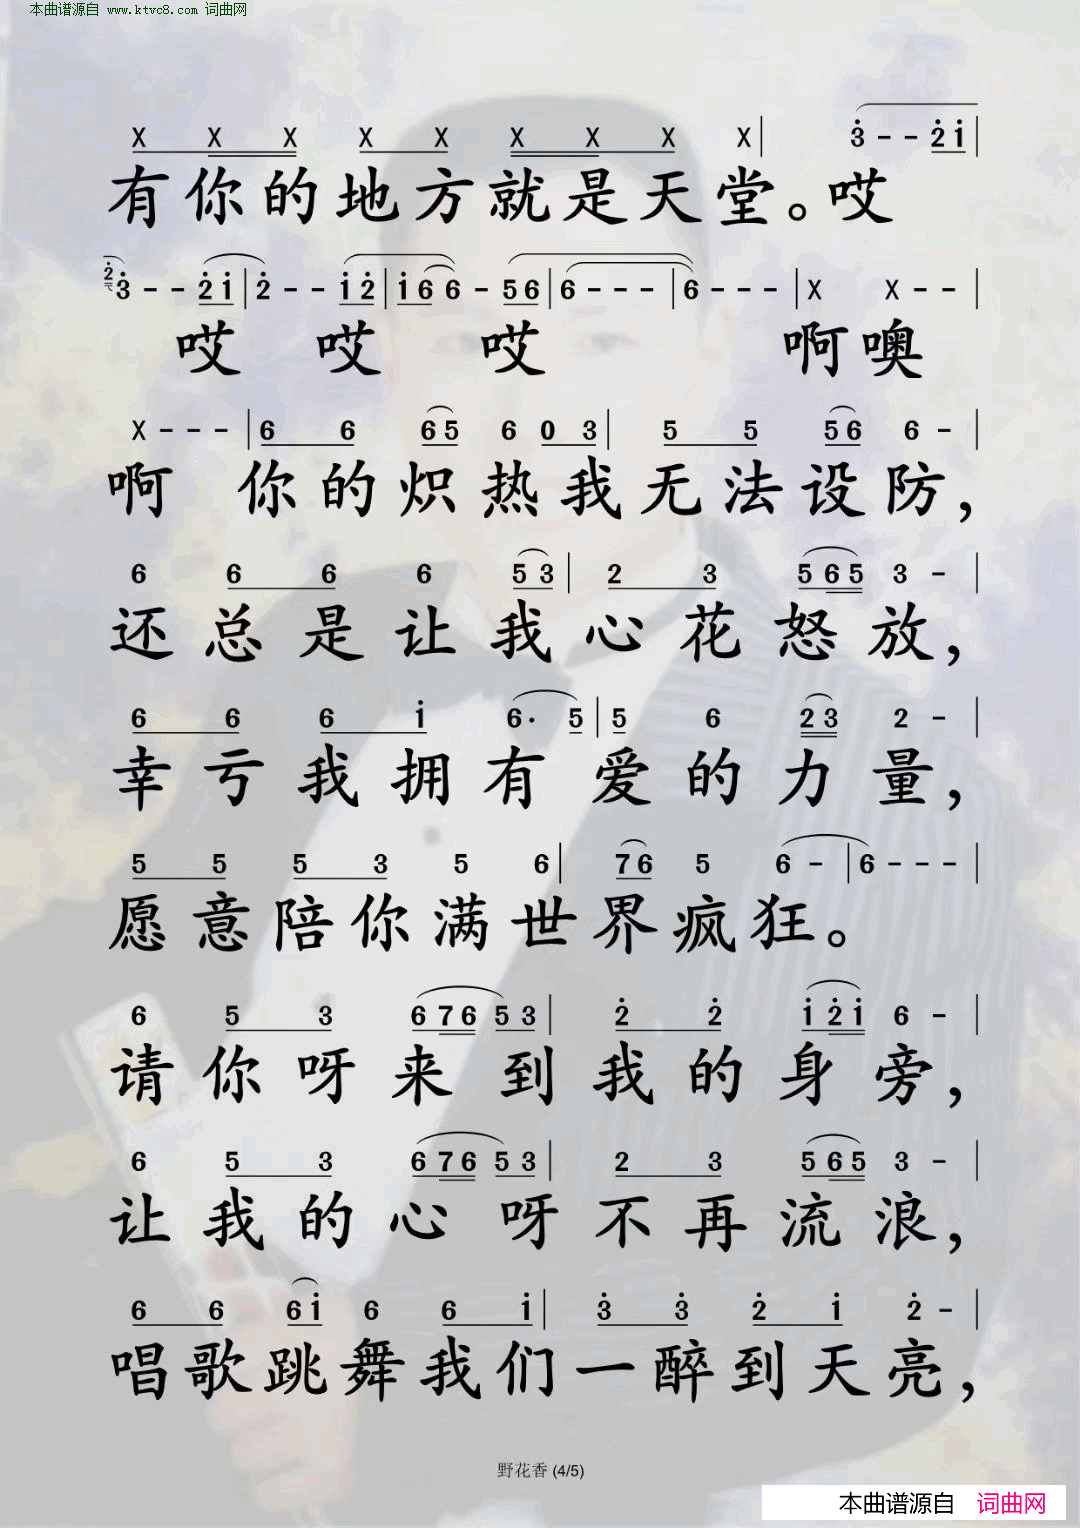 本曲谱源自 www.ktvc8.com 词曲网
X X X X X X X X X| 3 - - 2 1|
有你的地方就是天堂。哎
2 3 - - 2 1|2 - - 1 2|1 6 6 - 5 6|6 - - -|6 - - -|X X - -|
哎 哎 哎 啊噢
X - - -|6 6 6 5 6 0 3|5 5 5 6 6 -|
啊 你的炽热我无法设防,
6 6 6 6 5 3|2 3 5 6 5 3 -|
还总是让我心花怒放,
6 6 6 1 6· 5|5 6 2 3 2 -|
幸亏我拥有爱的力量,
5 5 5 3 5 6|7 6 5 6 -|6 - - -|
愿意陪你满世界疯狂。
6 5 3 6 7 6 5 3|2 2 1 2 1 6 -|
请你呀来到我的身旁,
6 5 3 6 7 6 5 3|2 3 5 6 5 3 -|
让我的心呀不再流浪,
6 6 6 1 6 6 1|3 3 2 1 2 -|
唱歌跳舞我们一醉到天亮,
野花香 (4/5)
本曲谱源自 词曲网